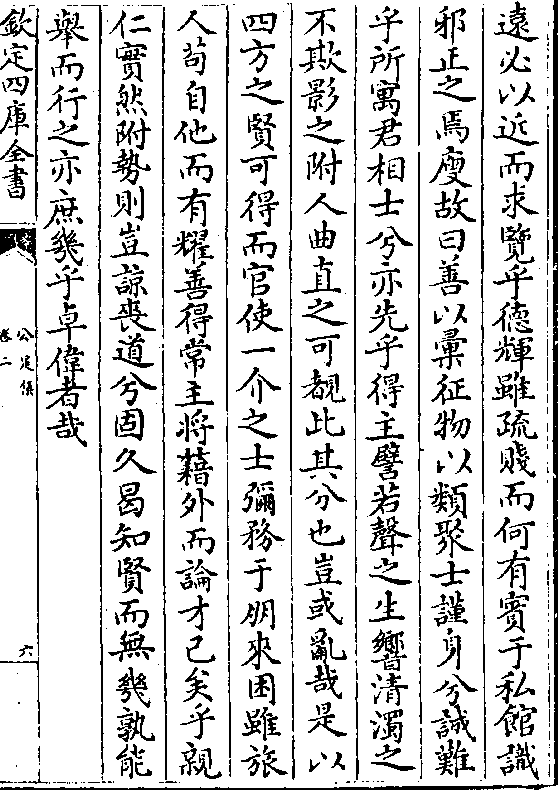 遠必以近而求覽乎德輝雖疏賤而何有賓于私館識
邪正之焉廋故曰善以彙征物以類聚士謹身兮誠難
乎所寓君相士兮亦先乎得主譬若聲之生響清濁之
不欺影之附人曲直之可覩此其分也豈或亂哉是以
四方之賢可得而官使一介之士彌務于朋來困雖旅
人苟自他而有耀善得常主將藉外而論才已矣乎親
仁實然附勢則豈諒喪道兮固久曷知賢而無幾孰能
舉而行之亦庶幾乎卓偉者哉
欽定四庫全書
公是集
卷二
六